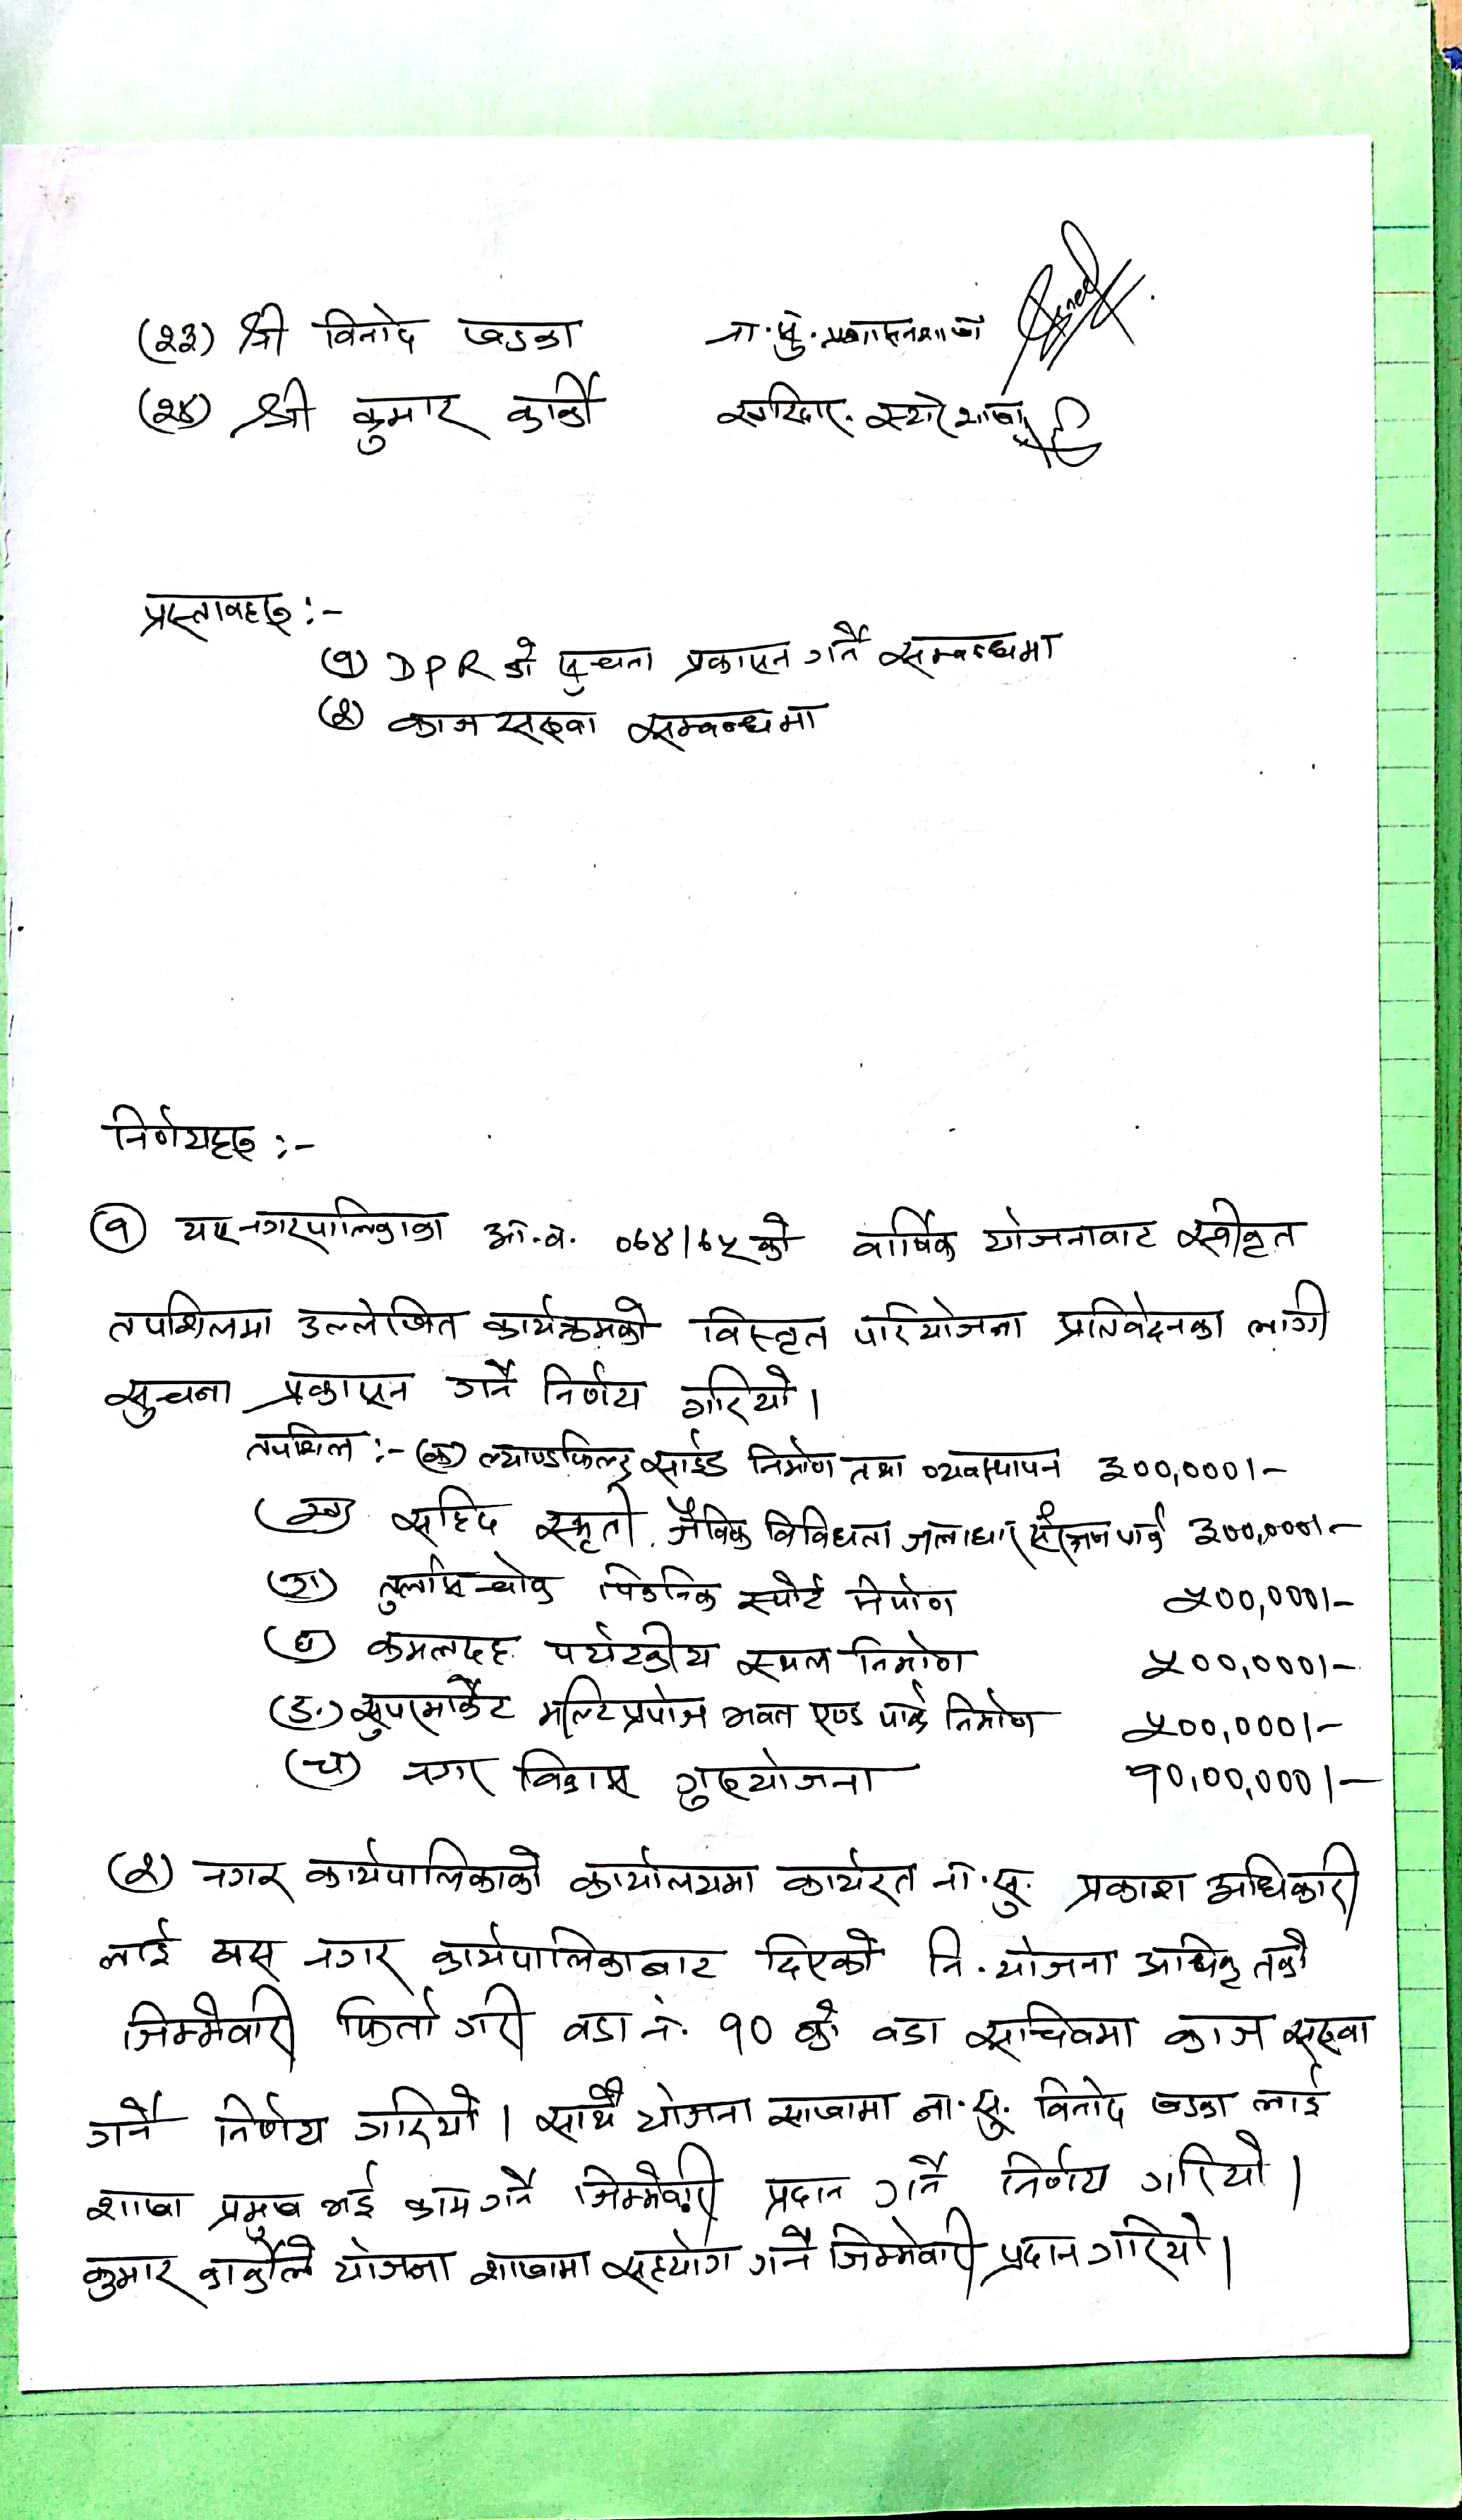 (२३) श्री विनोद खडका ना.सु. प्रशासन शाखा
(२४) श्री कुमार कार्की खरिदार. स्टोर शाखा
प्रस्तावहरु :-
(१) DPR को सुचना प्रकाशन गर्ने सम्बन्धमा
(२) काज सरुवा सम्बन्धमा
निर्णयहरु :-
(१) यस नगरपालिकाका आ.व. ०७४/७५ को वार्षिक योजनावाट स्वीकृत
तपशिलमा उल्लेखित कार्यक्रमको विस्तृत परियोजना प्रतिवेदनका लागी
सुचना प्रकाशन गर्ने निर्णय गरियो।
तपशिल :- (क) ल्याण्डफिल्ड साईड निर्माण तथा व्यवस्थापन ३००,०००।-
(ख) सहिद स्मृती जैविक विविधता जलाधार संरक्षण पार्क ३००,०००।-
(ग) तुलसि चोक पिकनिक स्पोर्ट निर्माण ५००,०००।-
(घ) कमलदह पर्यटकीय स्थल निर्माण ५००,०००।-
(ङ.) सुपरमार्केट मल्टिप्रपोज भवन एण्ड पार्क निर्माण ५००,०००।-
(च) नगर विकास गुरुयोजना १०,००,०००।-
(२) नगर कार्यपालिकाको कार्यालयमा कार्यरत ना.सु. प्रकाश अधिकारी
लाई यस नगर कार्यपालिकाबाट दिएको नि. योजना अधिकृतको
जिम्मेवारी फिर्ता गरी वडा नं. १० को वडा सचिवमा काज सरुवा
गर्ने निर्णय गरियो। साथै योजना साखामा ना.सु. विनोद खडका लाई
शाखा प्रमुख भई काम गर्ने जिम्मेवारी प्रदान गर्ने निर्णय गरियो।
कुमार कार्कीले योजना शाखामा सहयोग गर्ने जिम्मेवारी प्रदान गरियो।